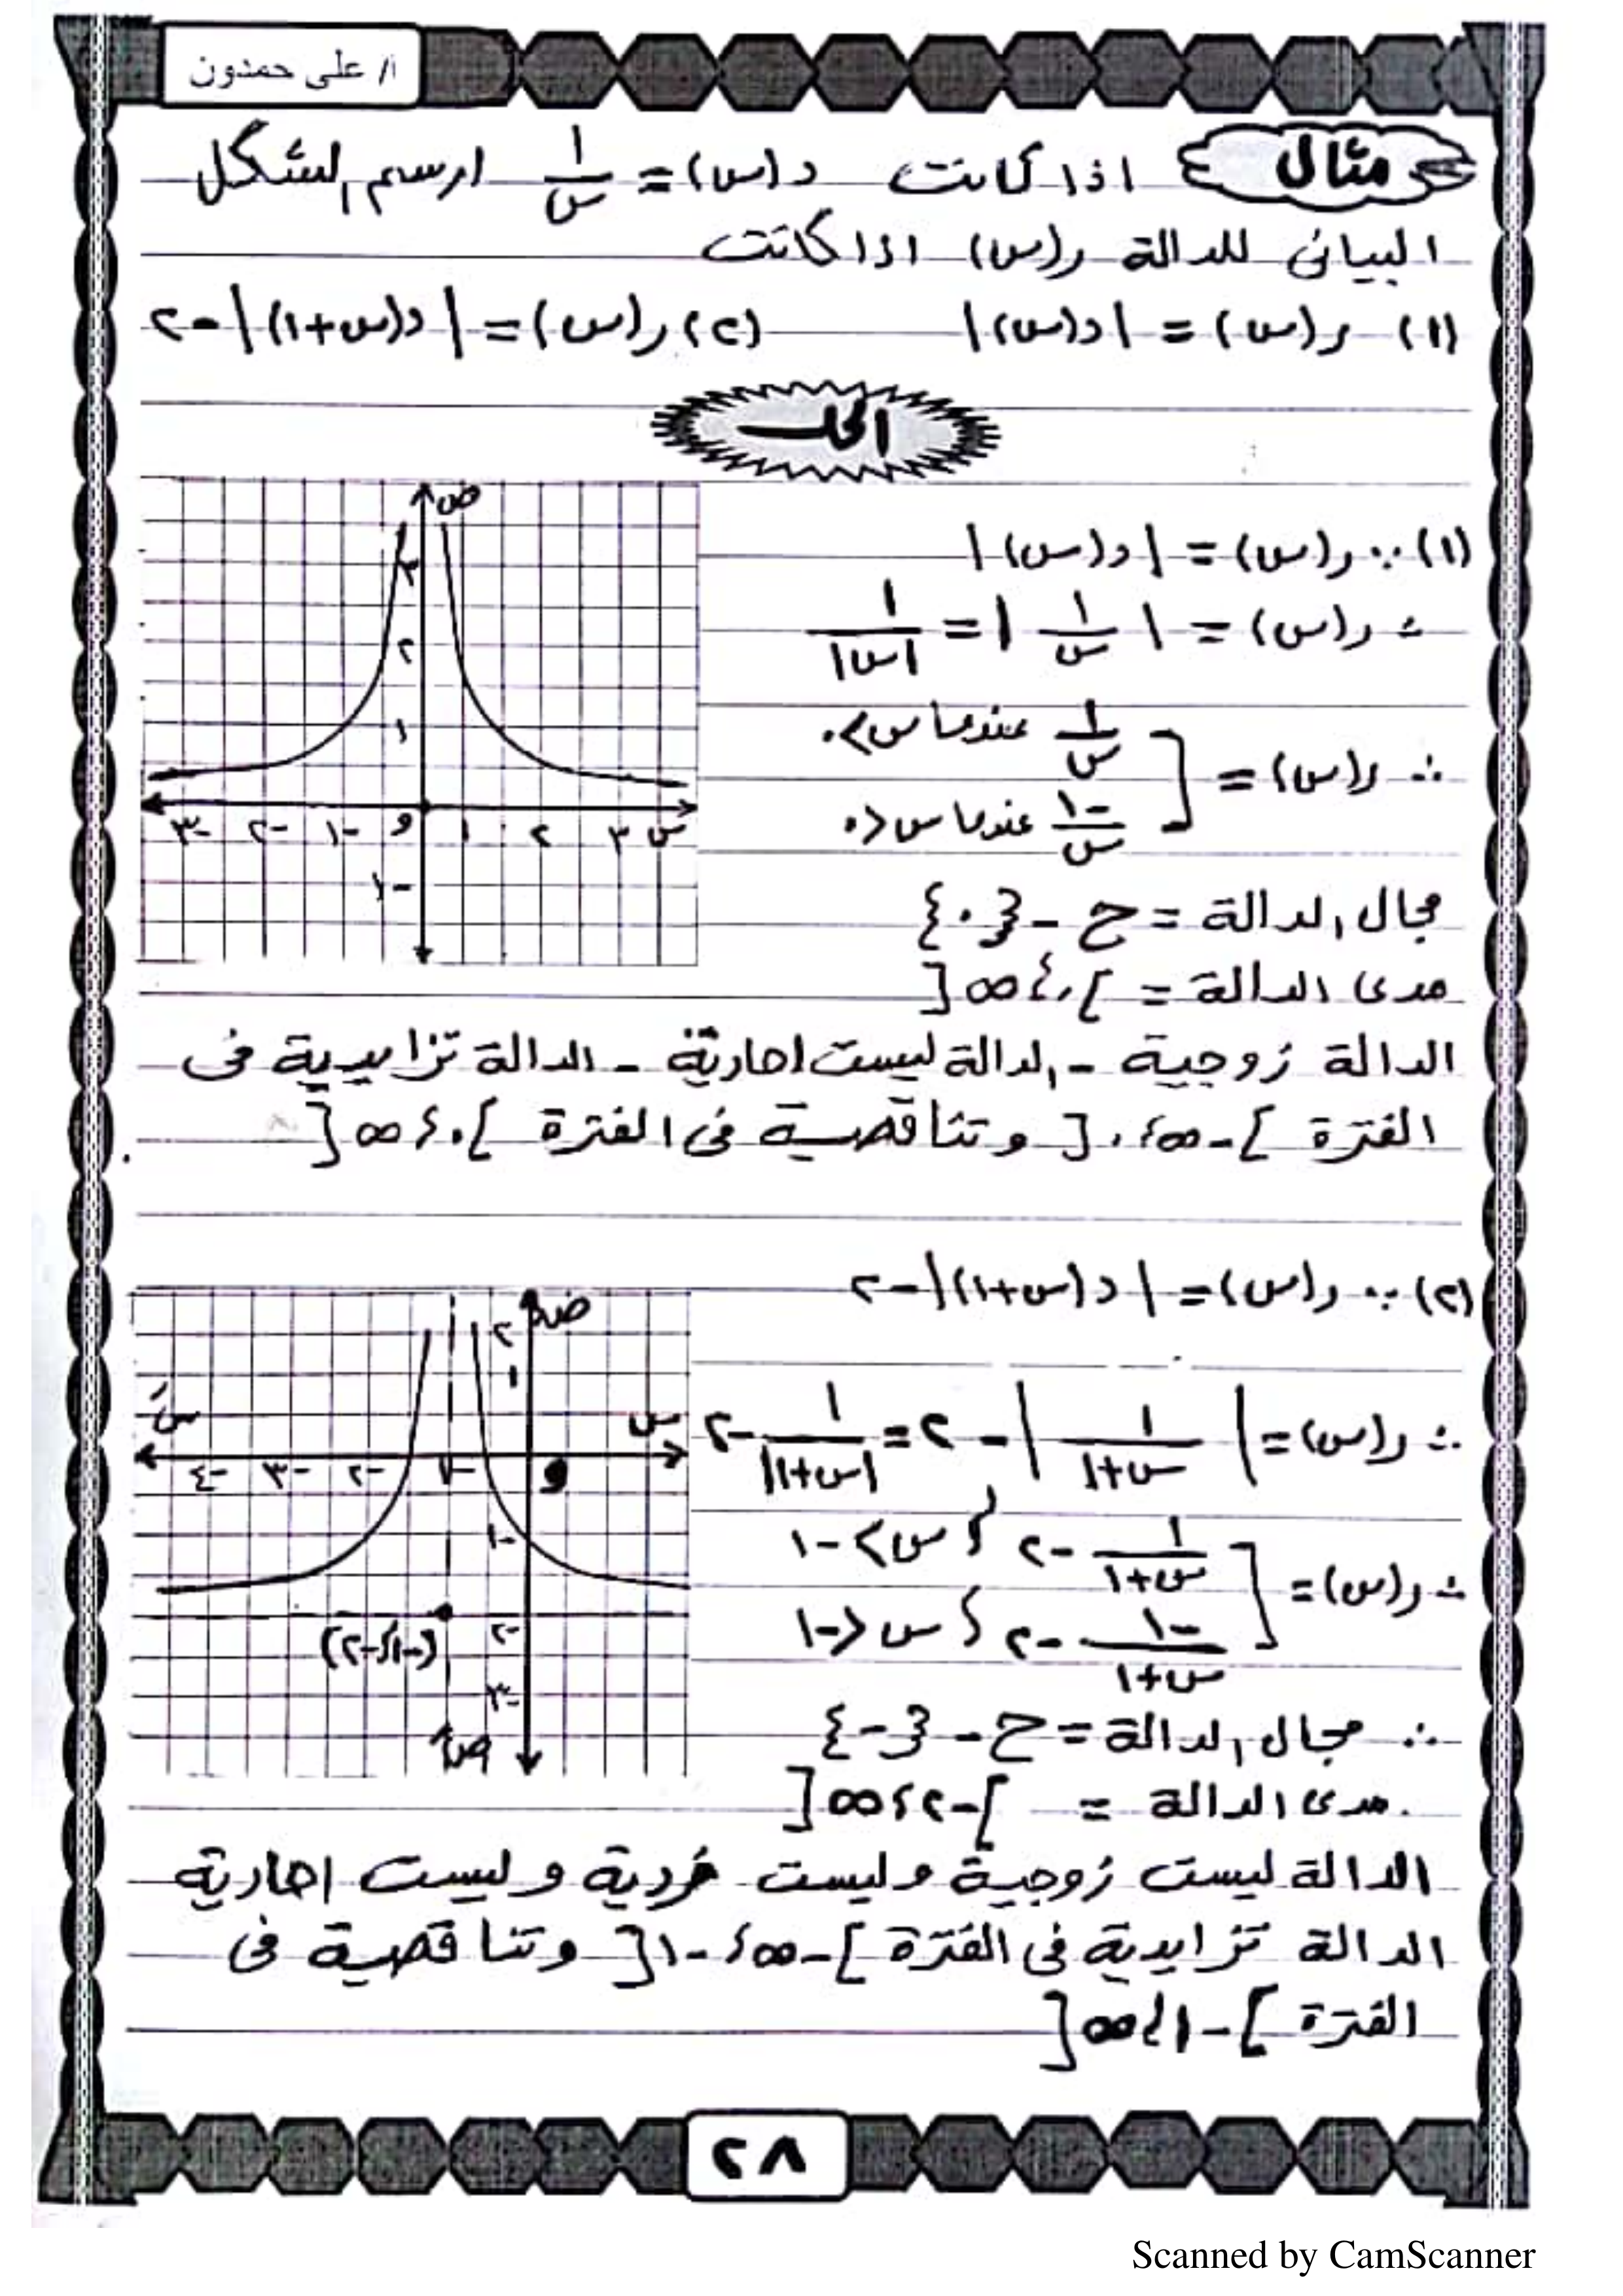 أ/ على حمدون
مثال اذا كانت د(س) = ١/س ارسم الشكل
البيانى للدالة ر(س) اذا كانت
(١) ر(س) = |د(س)| (٢) ر(س) = |د(س+١)| -٢
الحل
(١) ∵ ر(س) = |د(س)|
∴ ر(س) = |١/س| = ١/|س|
∴ ر(س) = [ ١/س عندما س > ٠
-١/س عندما س < ٠
مجال الدالة = ح - {٠}
مدى الدالة = ]٠، ∞[
ص
٣
٢
١
-٣ -٢ -١ و ١ ٢ ٣ س
-١
الدالة زوجية - الدالة ليست احادية - الدالة تزايدية فى
الفترة ]-∞، ٠[ وتناقصية فى الفترة ]٠، ∞[
(٢) ∵ ر(س) = |د(س+١)| -٢
∴ ر(س) = |١/س+١| - ٢ = ١/|س+١| -٢
∴ ر(س) = [ ١/س+١ -٢ ، س > -١
-١/س+١ -٢ ، س < -١
∴ مجال الدالة = ح - {-}
مدى الدالة = ]-٢، ∞[
ص
٢
١
سَ س
-٤ -٣ -٢ -١ و
-١
(-١، -٢) -٢
-٣
صَ
الدالة ليست زوجية وليست فردية وليست احادية
الدالة تزايدية فى الفترة ]-∞، -١[ وتناقصية فى
الفترة ]-١، ∞[
٢٨
Scanned by CamScanner